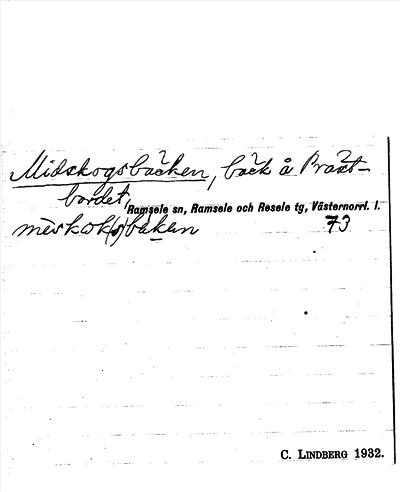 Midskogsbäcken, bäck å Präst-
bordet,
Ramsele sn, Ramsele och Resele tg, Västernorrl. l.
mèskɷk(s)bäkan 73
C. LINDBERG 1932.